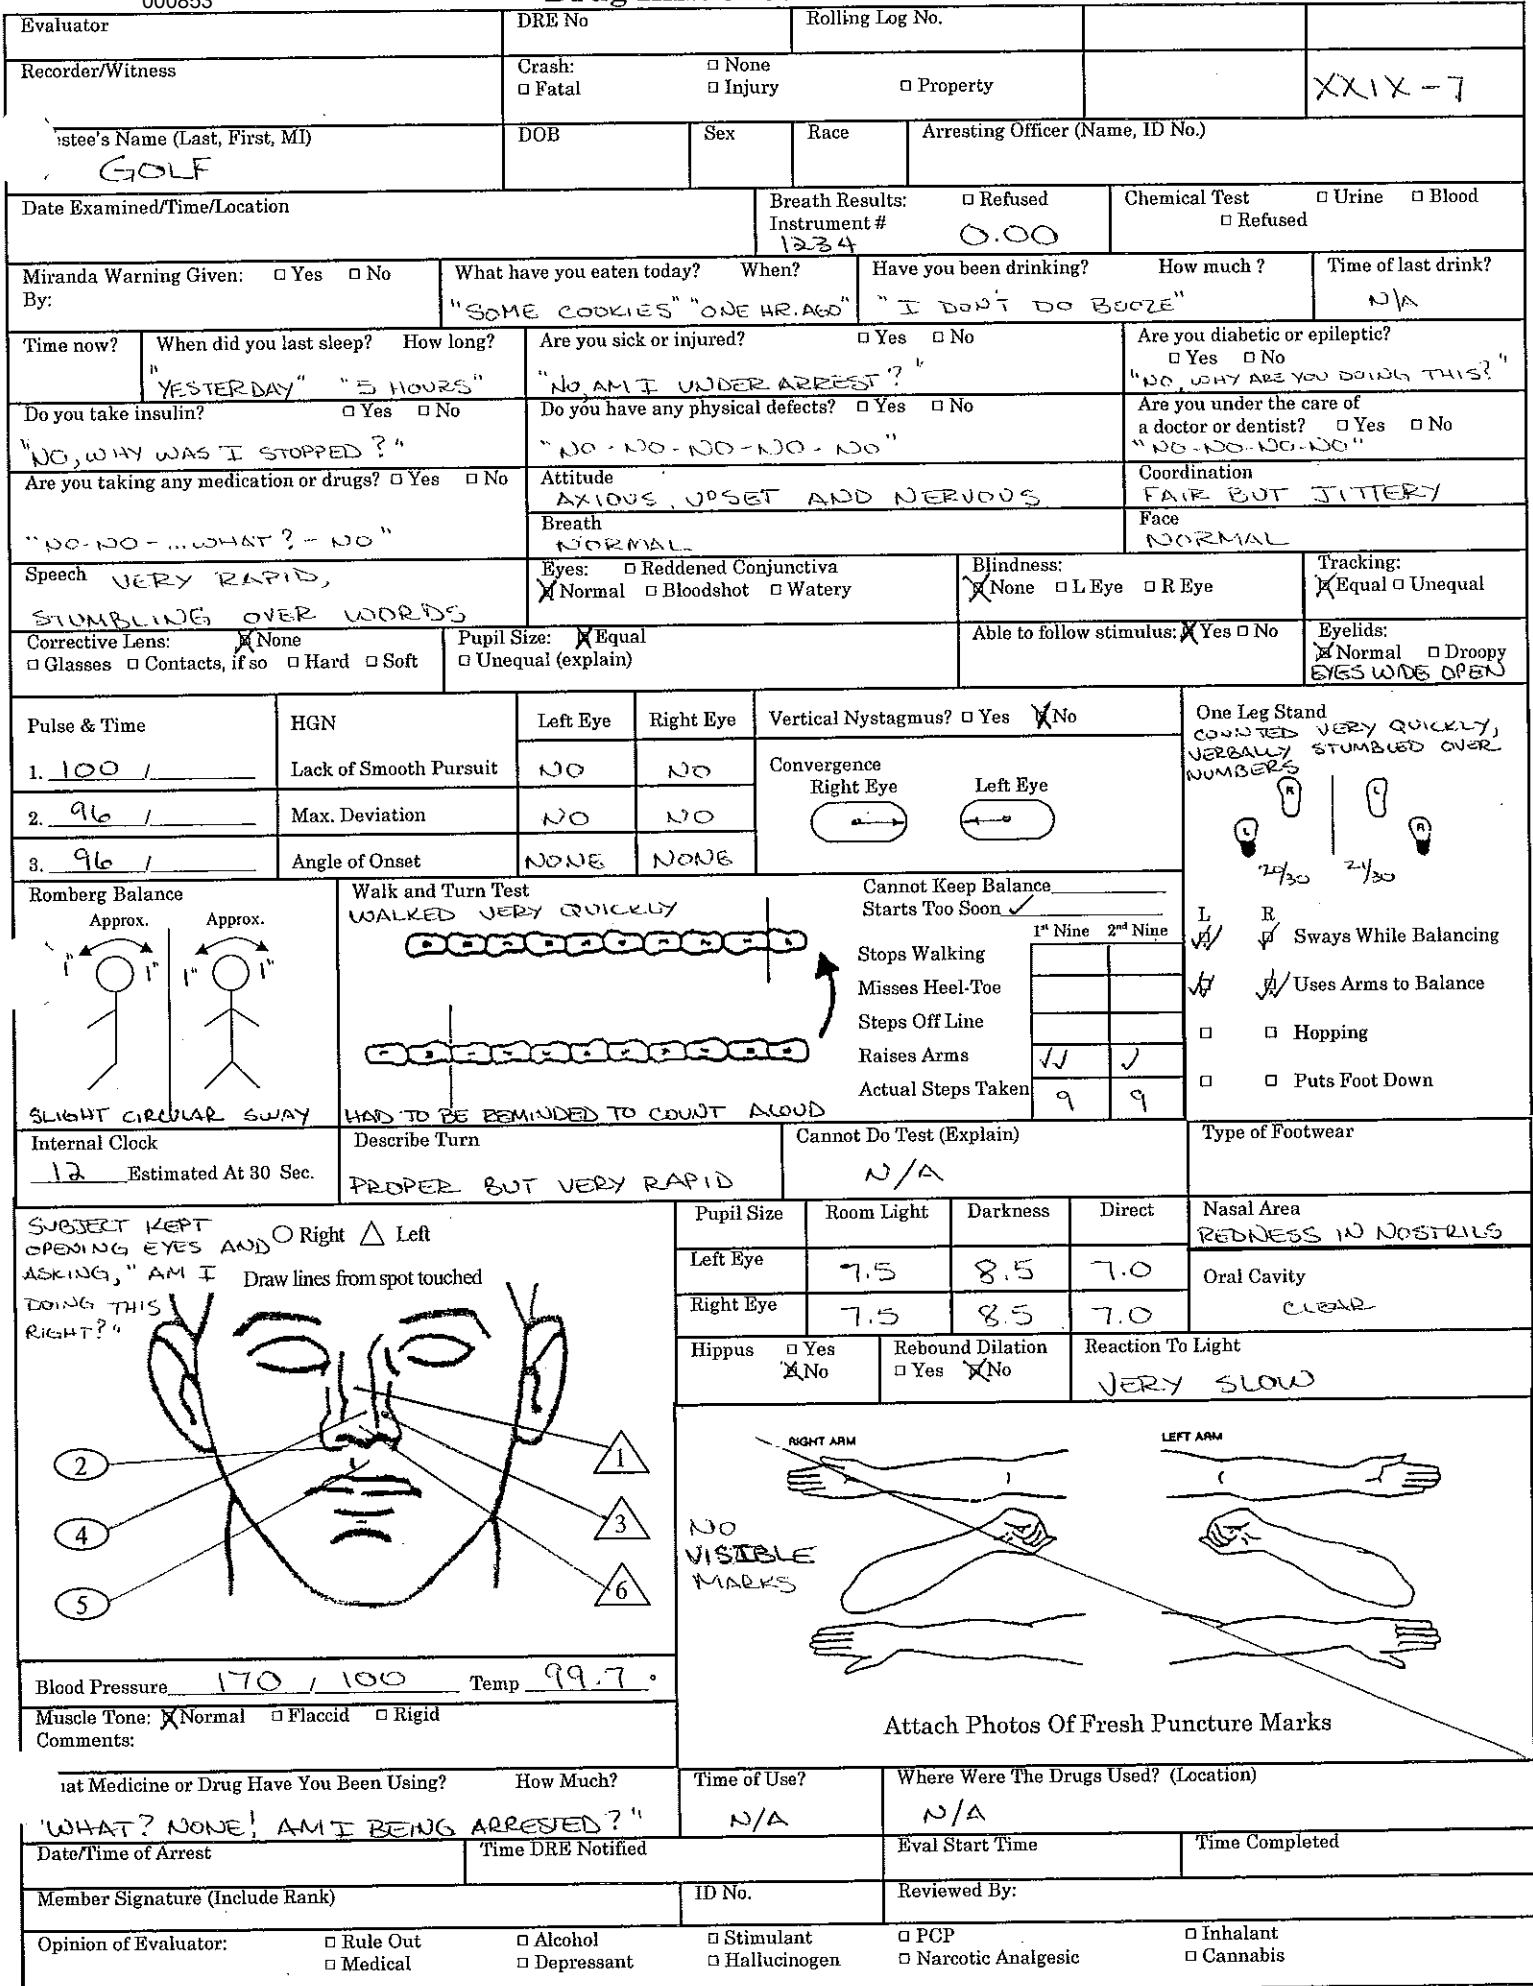 000853
Evaluator
DRE No
Rolling Log No.
Recorder/Witness
Crash: □ None
□ Fatal □ Injury □ Property
XXIX-7
stee's Name (Last, First, MI)
GOLF
DOB
Sex
Race
Arresting Officer (Name, ID No.)
Date Examined/Time/Location
Breath Results: □ Refused
Instrument #
1234 0.00
Chemical Test □ Urine □ Blood
□ Refused
Miranda Warning Given: □ Yes □ No
By:
What have you eaten today? When?
"SOME COOKIES" "ONE HR. AGO"
Have you been drinking? How much ?
"I DON'T DO BOOZE"
Time of last drink?
N/A
Time now?
When did you last sleep? How long?
"YESTERDAY" "5 HOURS"
Are you sick or injured? □ Yes □ No
"NO, AM I UNDER ARREST?"
Are you diabetic or epileptic?
□ Yes □ No
"NO, WHY ARE YOU DOING THIS?"
Do you take insulin? □ Yes □ No
"NO, WHY WAS I STOPPED?"
Do you have any physical defects? □ Yes □ No
"NO-NO-NO-NO-NO"
Are you under the care of
a doctor or dentist? □ Yes □ No
"NO-NO-NO-NO"
Are you taking any medication or drugs? □ Yes □ No
"NO-NO-...WHAT?-NO"
Attitude
AXIOUS, UPSET AND NERVOUS
Coordination
FAIR BUT JITTERY
Breath
NORMAL
Face
NORMAL
Speech VERY RAPID,
STUMBLING OVER WORDS
Eyes: □ Reddened Conjunctiva
☒ Normal □ Bloodshot □ Watery
Blindness:
☒ None □ L Eye □ R Eye
Tracking:
☒ Equal □ Unequal
Corrective Lens: ☒ None
□ Glasses □ Contacts, if so □ Hard □ Soft
Pupil Size: ☒ Equal
□ Unequal (explain)
Able to follow stimulus: ☒ Yes □ No
Eyelids:
☒ Normal □ Droopy
EYES WIDE OPEN
Pulse & Time
1. 100 /
2. 96 /
3. 96 /
HGN Left Eye Right Eye
Lack of Smooth Pursuit NO NO
Max. Deviation NO NO
Angle of Onset NONE NONE
Vertical Nystagmus? □ Yes ☒ No
Convergence
Right Eye Left Eye
One Leg Stand
COUNTED VERY QUICKLY,
VERBALLY STUMBLED OVER
NUMBERS
R L
L R
20/30 21/30
L R
☑ ☑ Sways While Balancing
☑ ☑ Uses Arms to Balance
□ □ Hopping
□ □ Puts Foot Down
Romberg Balance
Approx. Approx.
1" 1" 1" 1"
SLIGHT CIRCULAR SWAY
Walk and Turn Test
WALKED VERY QUICKLY
HAD TO BE REMINDED TO COUNT ALOUD
Cannot Keep Balance
Starts Too Soon ✓
1st Nine 2nd Nine
Stops Walking
Misses Heel-Toe
Steps Off Line
Raises Arms ✓✓ ✓
Actual Steps Taken 9 9
Internal Clock
12 Estimated At 30 Sec.
Describe Turn
PROPER BUT VERY RAPID
Cannot Do Test (Explain)
N/A
Type of Footwear
SUBJECT KEPT
OPENING EYES AND
ASKING, "AM I
DOING THIS
RIGHT?"
○ Right △ Left
Draw lines from spot touched
1
2
3
4
5
6
Pupil Size Room Light Darkness Direct
Left Eye 7.5 8.5 7.0
Right Eye 7.5 8.5 7.0
Nasal Area
REDNESS IN NOSTRILS
Oral Cavity
CLEAR
Hippus □ Yes
☒ No
Rebound Dilation
□ Yes ☒ No
Reaction To Light
VERY SLOW
RIGHT ARM
LEFT ARM
NO
VISIBLE
MARKS
Attach Photos Of Fresh Puncture Marks
Blood Pressure 170 / 100 Temp 99.7 °
Muscle Tone: ☒ Normal □ Flaccid □ Rigid
Comments:
at Medicine or Drug Have You Been Using? How Much?
"WHAT? NONE! AM I BEING ARRESTED?"
Time of Use?
N/A
Where Were The Drugs Used? (Location)
N/A
Date/Time of Arrest
Time DRE Notified
Eval Start Time
Time Completed
Member Signature (Include Rank)
ID No.
Reviewed By:
Opinion of Evaluator: □ Rule Out □ Alcohol □ Stimulant □ PCP □ Inhalant
□ Medical □ Depressant □ Hallucinogen □ Narcotic Analgesic □ Cannabis